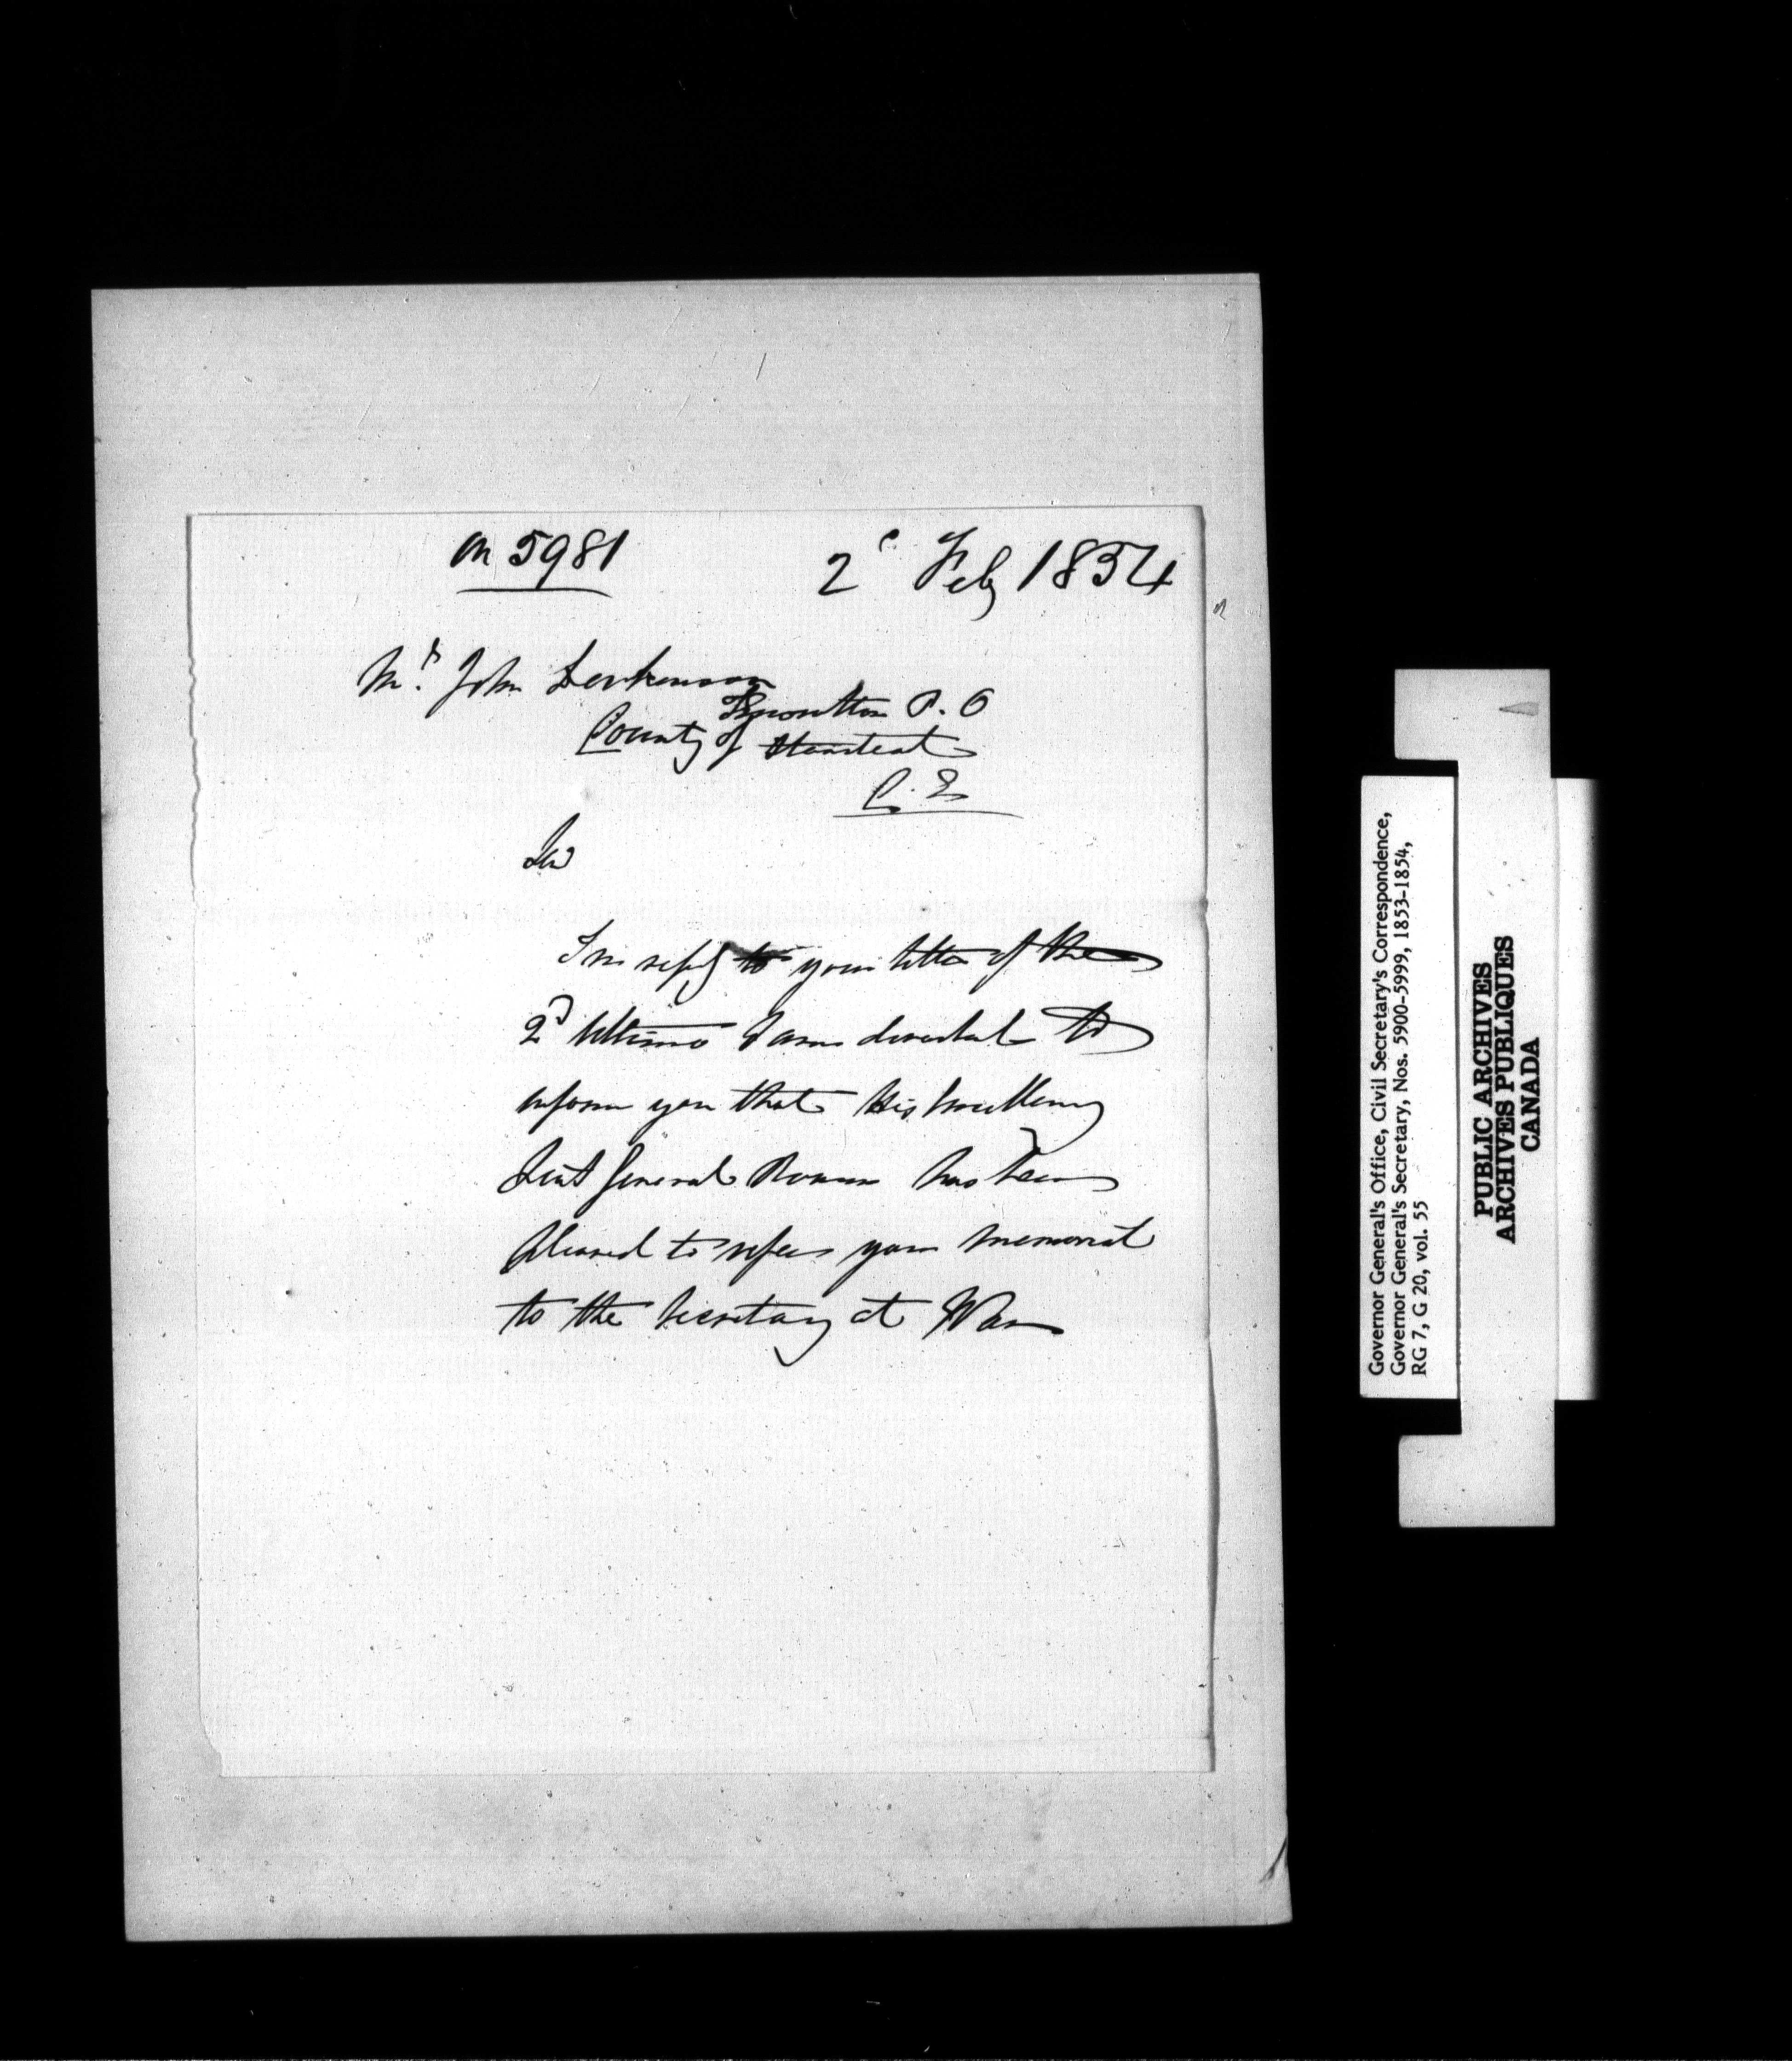 on 5981
2d Feby 1854
Mr. John
Knowlton P. O
County of Stanstead
C. E
Sir
In reply to your letter of the
2d Ultimo I am directed to
inform you that His Excellency
Lieut General Rowan has been
pleased to refer your memorial
to the Secretary at War
Governor General's Office, Civil Secretary's Correspondence,
Governor General's Secretary, Nos. 5900-5999, 1853-1854,
RG 7, G 20, vol. 55
PUBLIC ARCHIVES
ARCHIVES PUBLIQUES
CANADA